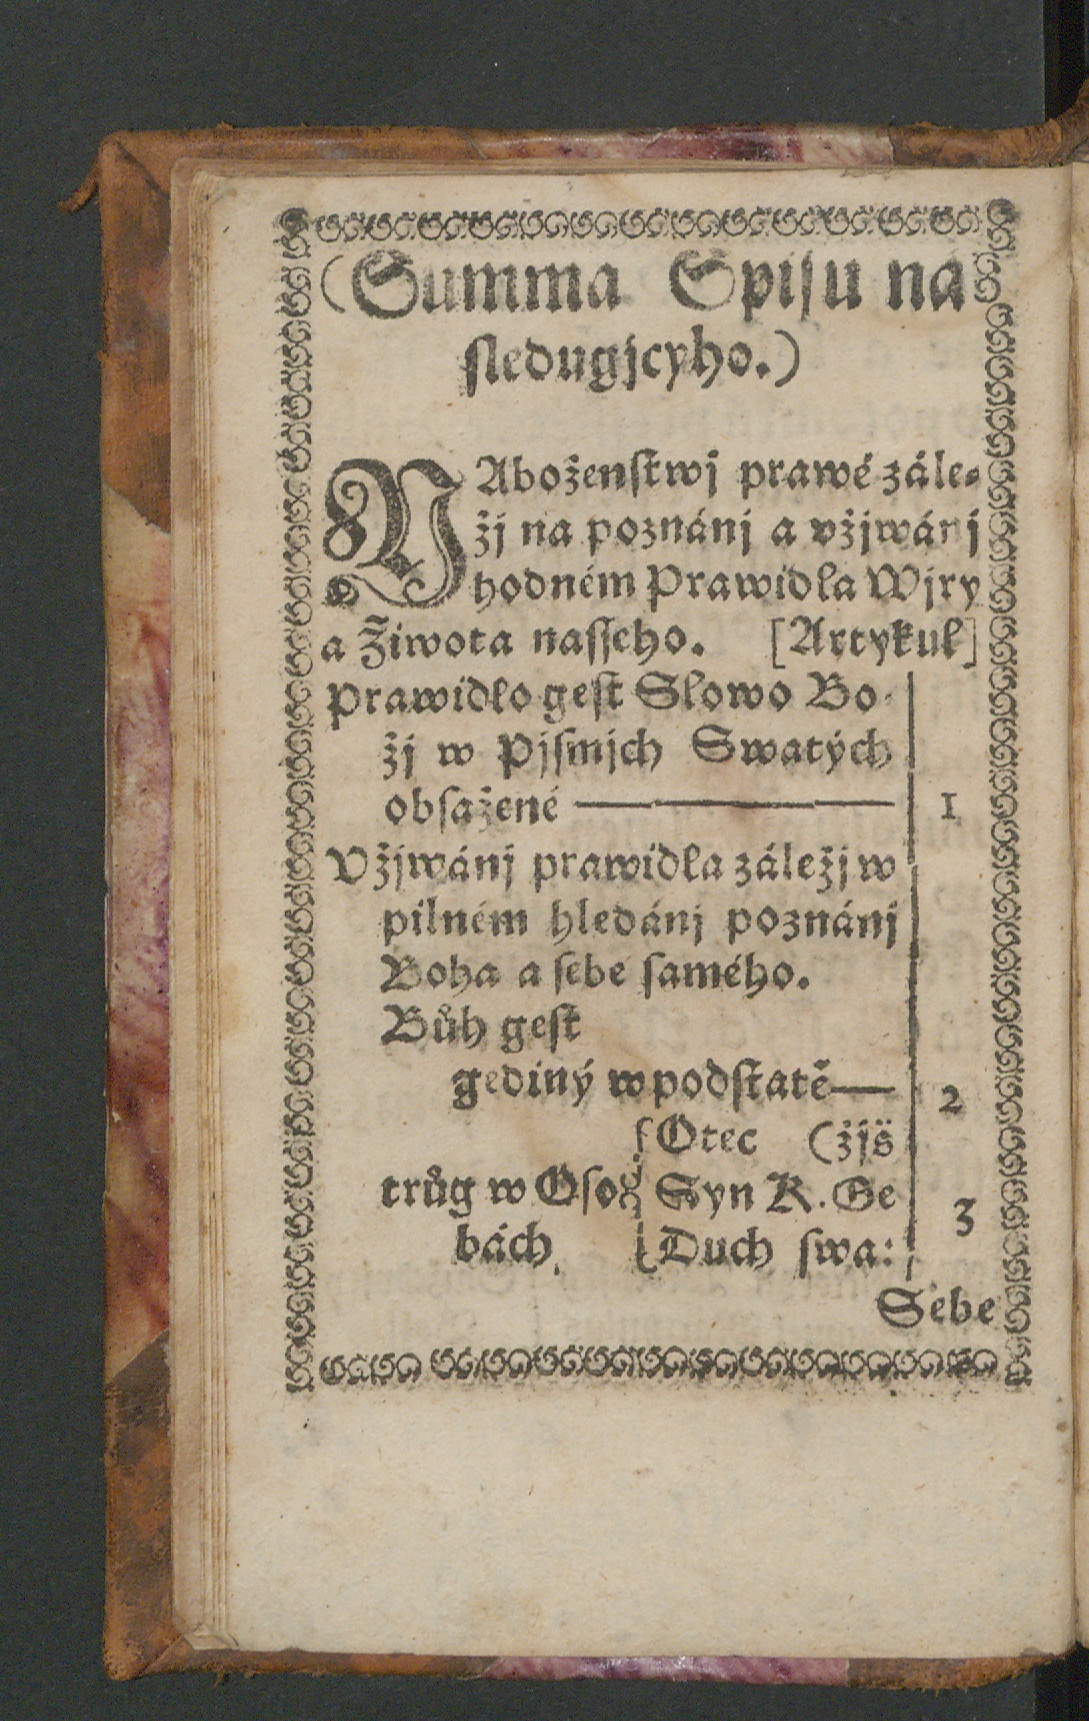 (Summa Spisu na
sledugjcyho.)
NAboženstwj prawé zále-
žj na poznánj a vžjwánj
hodném Prawidla Wjry
a Žiwota nasseho. [Artykul]
Prawidlo gest Slowo Bo-
žj w Pjsmjch Swatých
obsažené — 1
Vžjwánj prawidla záležj w
pilném hledánj poznánj
Boha a sebe samého.
Bůh gest
gediný w podstatě — 2
Otec (žjš
trůg w Oso Syn K. Ge 3
bách. Duch swa:
Sebe